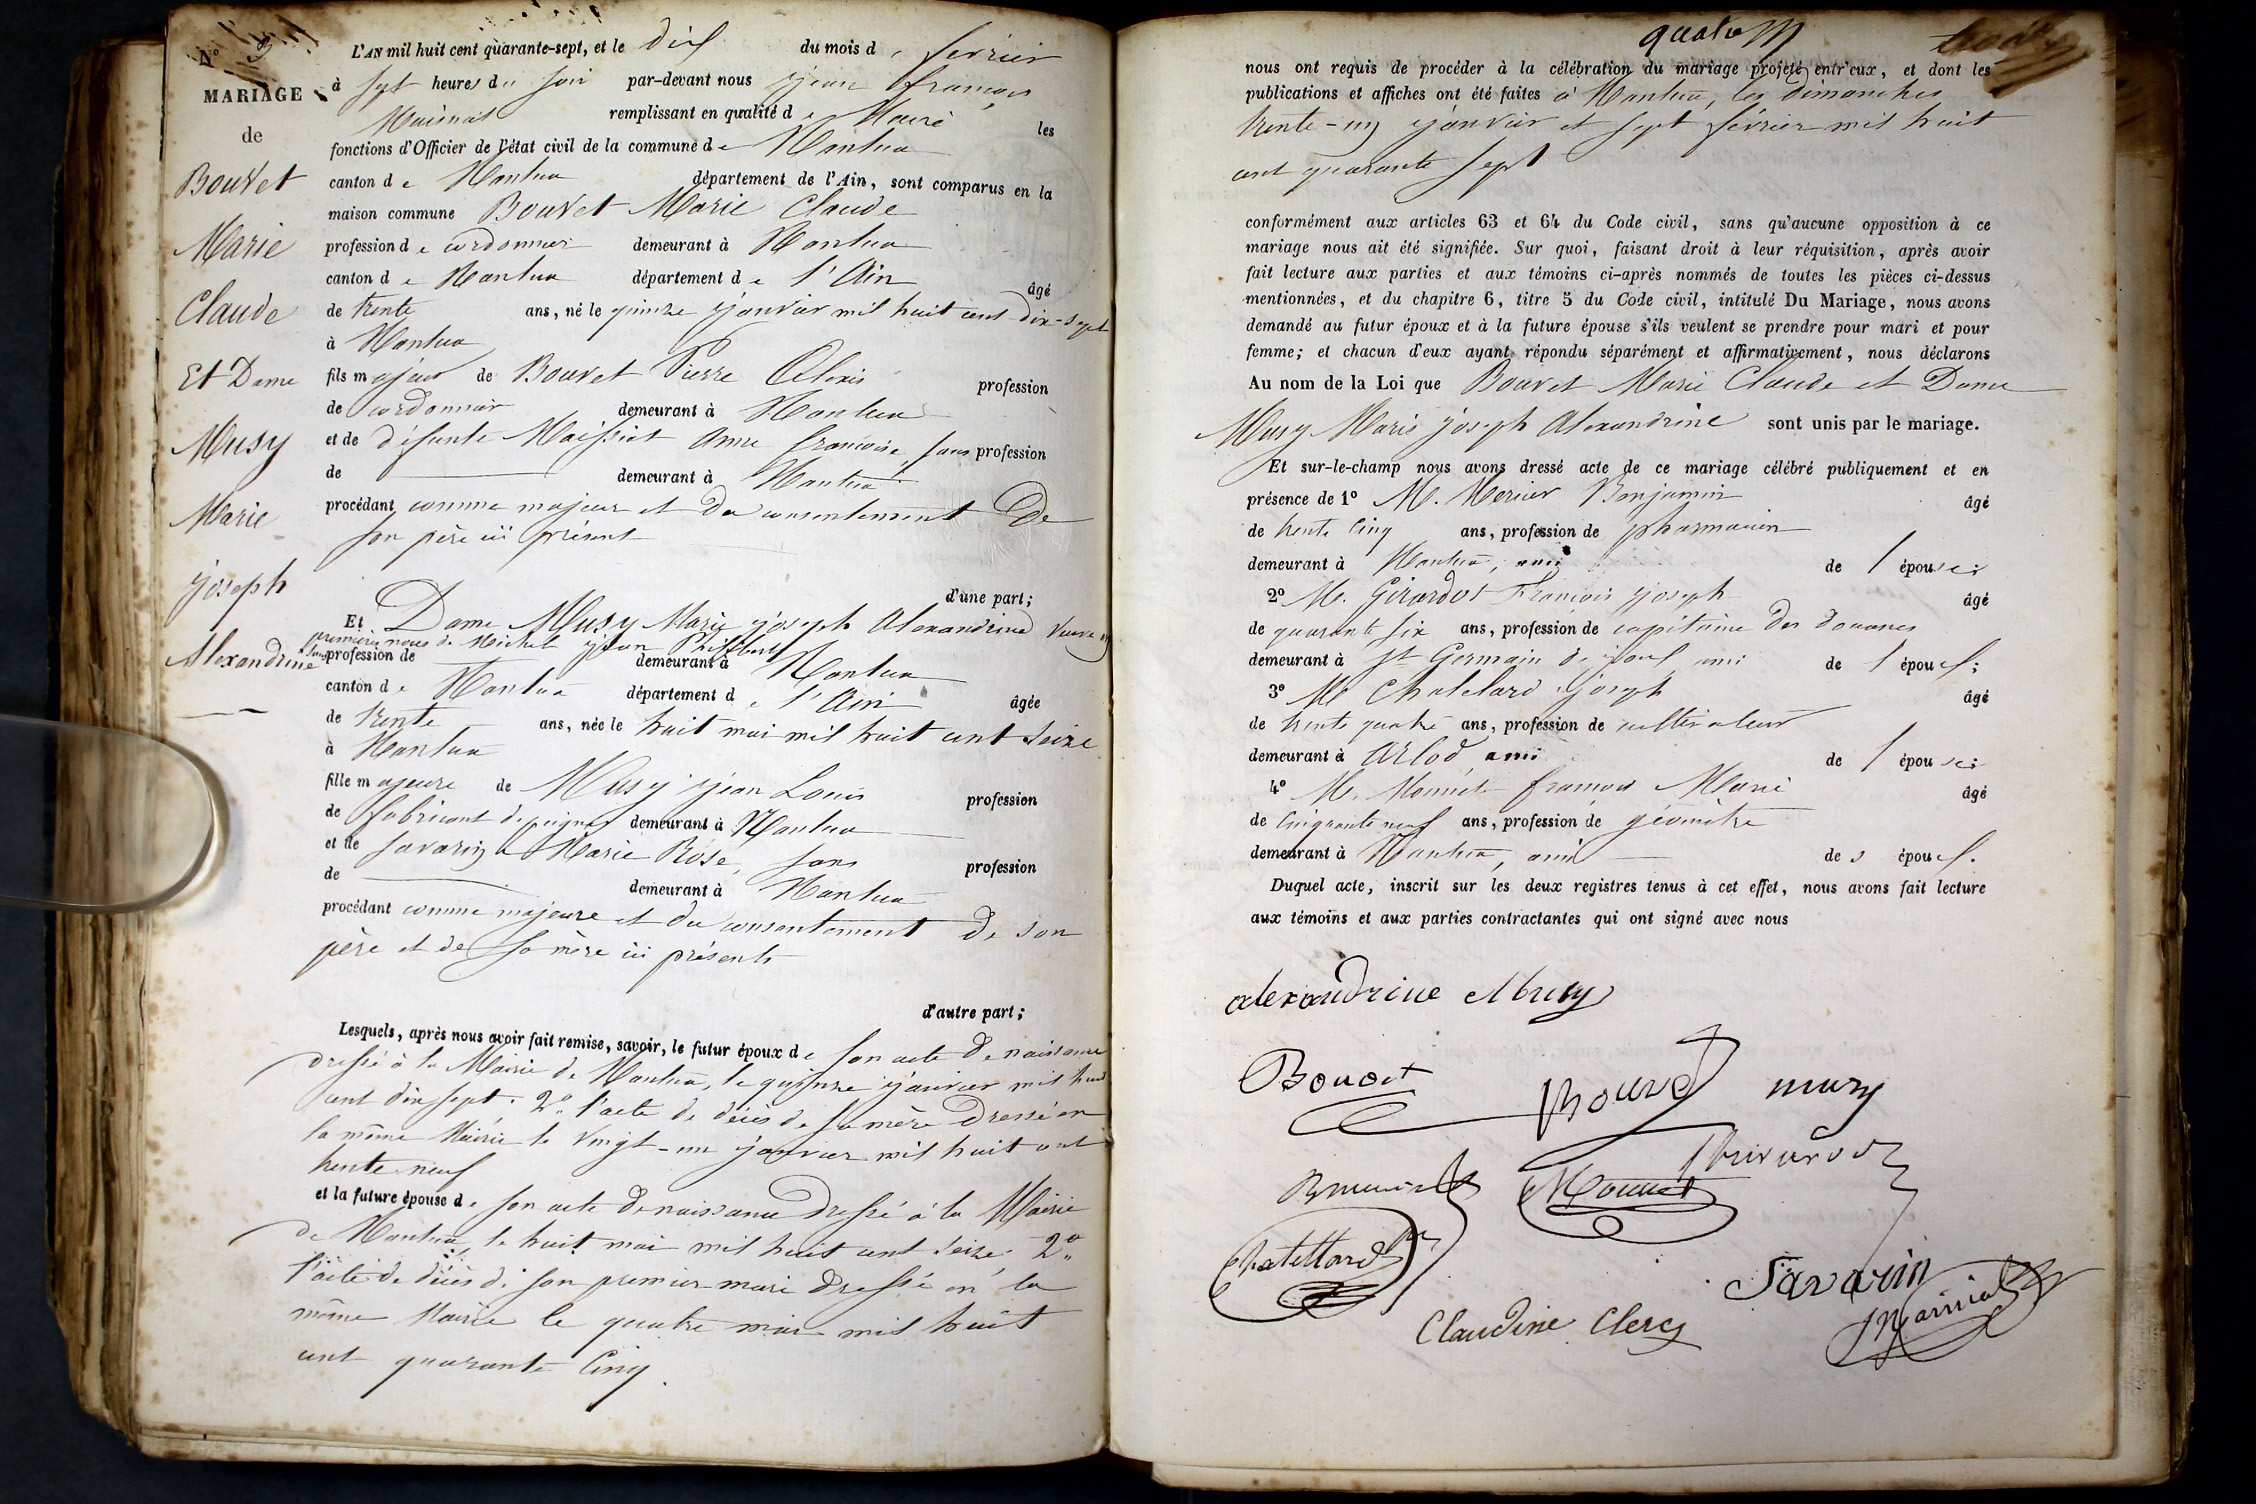 N° 3
MARIAGE
de
Bouvet
Marie
Claude
Et Dame
Musy
Marie
joseph
Alexandrine
L'AN mil huit cent quarante-sept, et le dix du mois de février
à sept heures du soir par-devant nous jean françois
remplissant en qualité de Maire les
fonctions d'Officier de l'état civil de la commune de Nantua
canton de Nantua département de l'Ain, sont comparus en la
maison commune Bouvet Marie Claude
profession de cordonnier demeurant à Nantua
canton de Nantua département de l'Ain âgé
de trente ans, né le quinze janvier mil huit cent dix-sept
à Nantua
fils majeur de Bouvet Pierre Alexis profession
de cordonnier demeurant à Nantua
et de défunte Maissiat Anne françoise, sans profession
de demeurant à Nantua
procédant comme majeur et du consentement de
son père ici présent
d'une part;
Et Dame Musy Marie joseph Alexandrine veuve en
premières noces de Michel jean Philibert
sans profession de demeurant à Nantua
canton de Nantua département de l'Ain âgée
de trente ans, née le huit mai mil huit cent seize
à Nantua
fille majeure de Musy jean Louis profession
de fabricant de peignes demeurant à Nantua
et de Savarin Marie Rose, sans profession
de demeurant à Nantua
procédant comme majeure et du consentement de son
père et de sa mère ici présents
d'autre part;
Lesquels, après nous avoir fait remise, savoir, le futur époux de son acte de naissance
dressé à la Mairie de Nantua, le quinze janvier mil huit
cent dix sept. 2° l'acte de décès de sa mère dressé en
la même Mairie le vingt-un janvier mil huit cent
trente neuf
et la future épouse de son acte de naissance dressé à la Mairie
de Nantua le huit mai mil huit cent seize. 2°
l'acte de décès de son premier mari dressé en la
même Mairie le quatre mai mil huit
cent quarante cinq.
quatre
nous ont requis de procéder à la célébration du mariage projeté entr'eux, et dont les
publications et affiches ont été faites à Nantua, les dimanches
trente-un janvier et sept février mil huit
cent quarante sept
conformément aux articles 63 et 64 du Code civil, sans qu'aucune opposition à ce
mariage nous ait été signifiée. Sur quoi, faisant droit à leur réquisition, après avoir
fait lecture aux parties et aux témoins ci-après nommés de toutes les pièces ci-dessus
mentionnées, et du chapitre 6, titre 5 du Code civil, intitulé Du Mariage, nous avons
demandé au futur époux et à la future épouse s'ils veulent se prendre pour mari et pour
femme; et chacun d'eux ayant répondu séparément et affirmativement, nous déclarons
Au nom de la Loi que Bouvet Marie Claude et Dame
Musy Marie joseph Alexandrine sont unis par le mariage.
Et sur-le-champ nous avons dressé acte de ce mariage célébré publiquement et en
présence de 1° M. Mercier Benjamin âgé
de trente cinq ans, profession de pharmacien
demeurant à Nantua, ami de l'épouse;
2° M. Girardot François joseph âgé
de quarante six ans, profession de capitaine des douanes
demeurant à St Germain de joux ami de l'époux;
3° M Chatelard joseph âgé
de trente quatre ans, profession de cultivateur
demeurant à Arlod ami de l'épouse;
4° M. Monnet françois Marie âgé
de cinquante neuf ans, profession de géomètre
demeurant à Nantua, ami des époux.
Duquel acte, inscrit sur les deux registres tenus à cet effet, nous avons fait lecture
aux témoins et aux parties contractantes qui ont signé avec nous
alexandrine Musy
Bouvet
Bouvet
musy
Girardot
Monnet
Chatellard
Savarin
Claudine Clerc